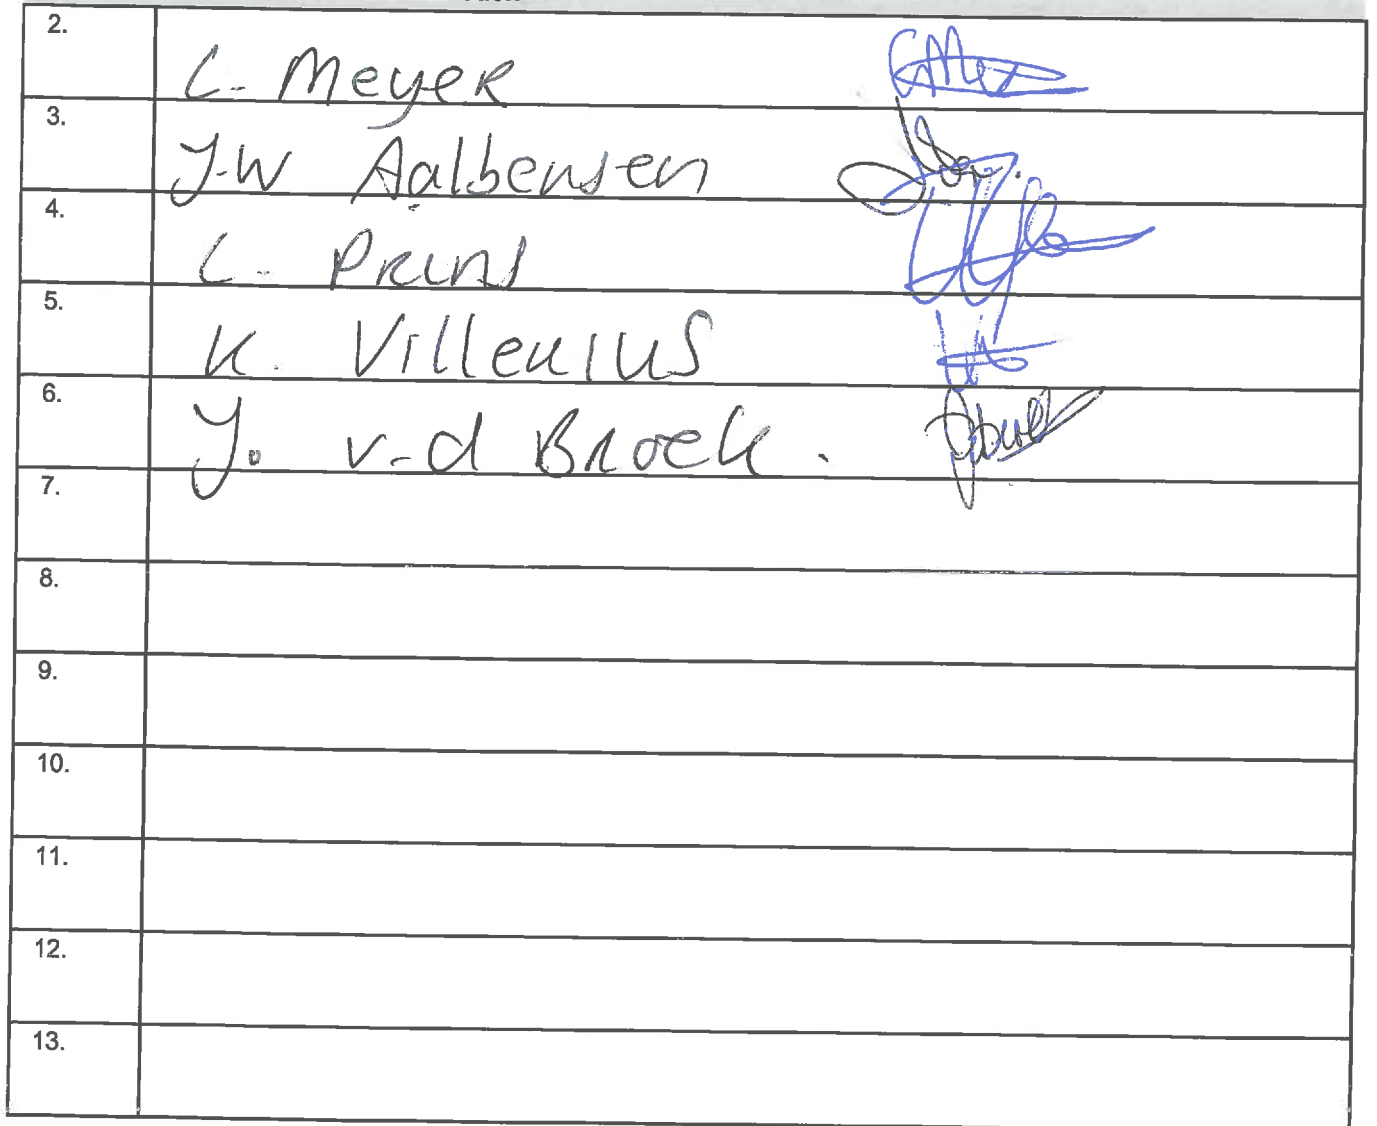 2. L. Meyer
3. J-W Aalbensen
4. L. Prins
5. K. Villenius
6. J. v.d Broek.
7.
8.
9.
10.
11.
12.
13.